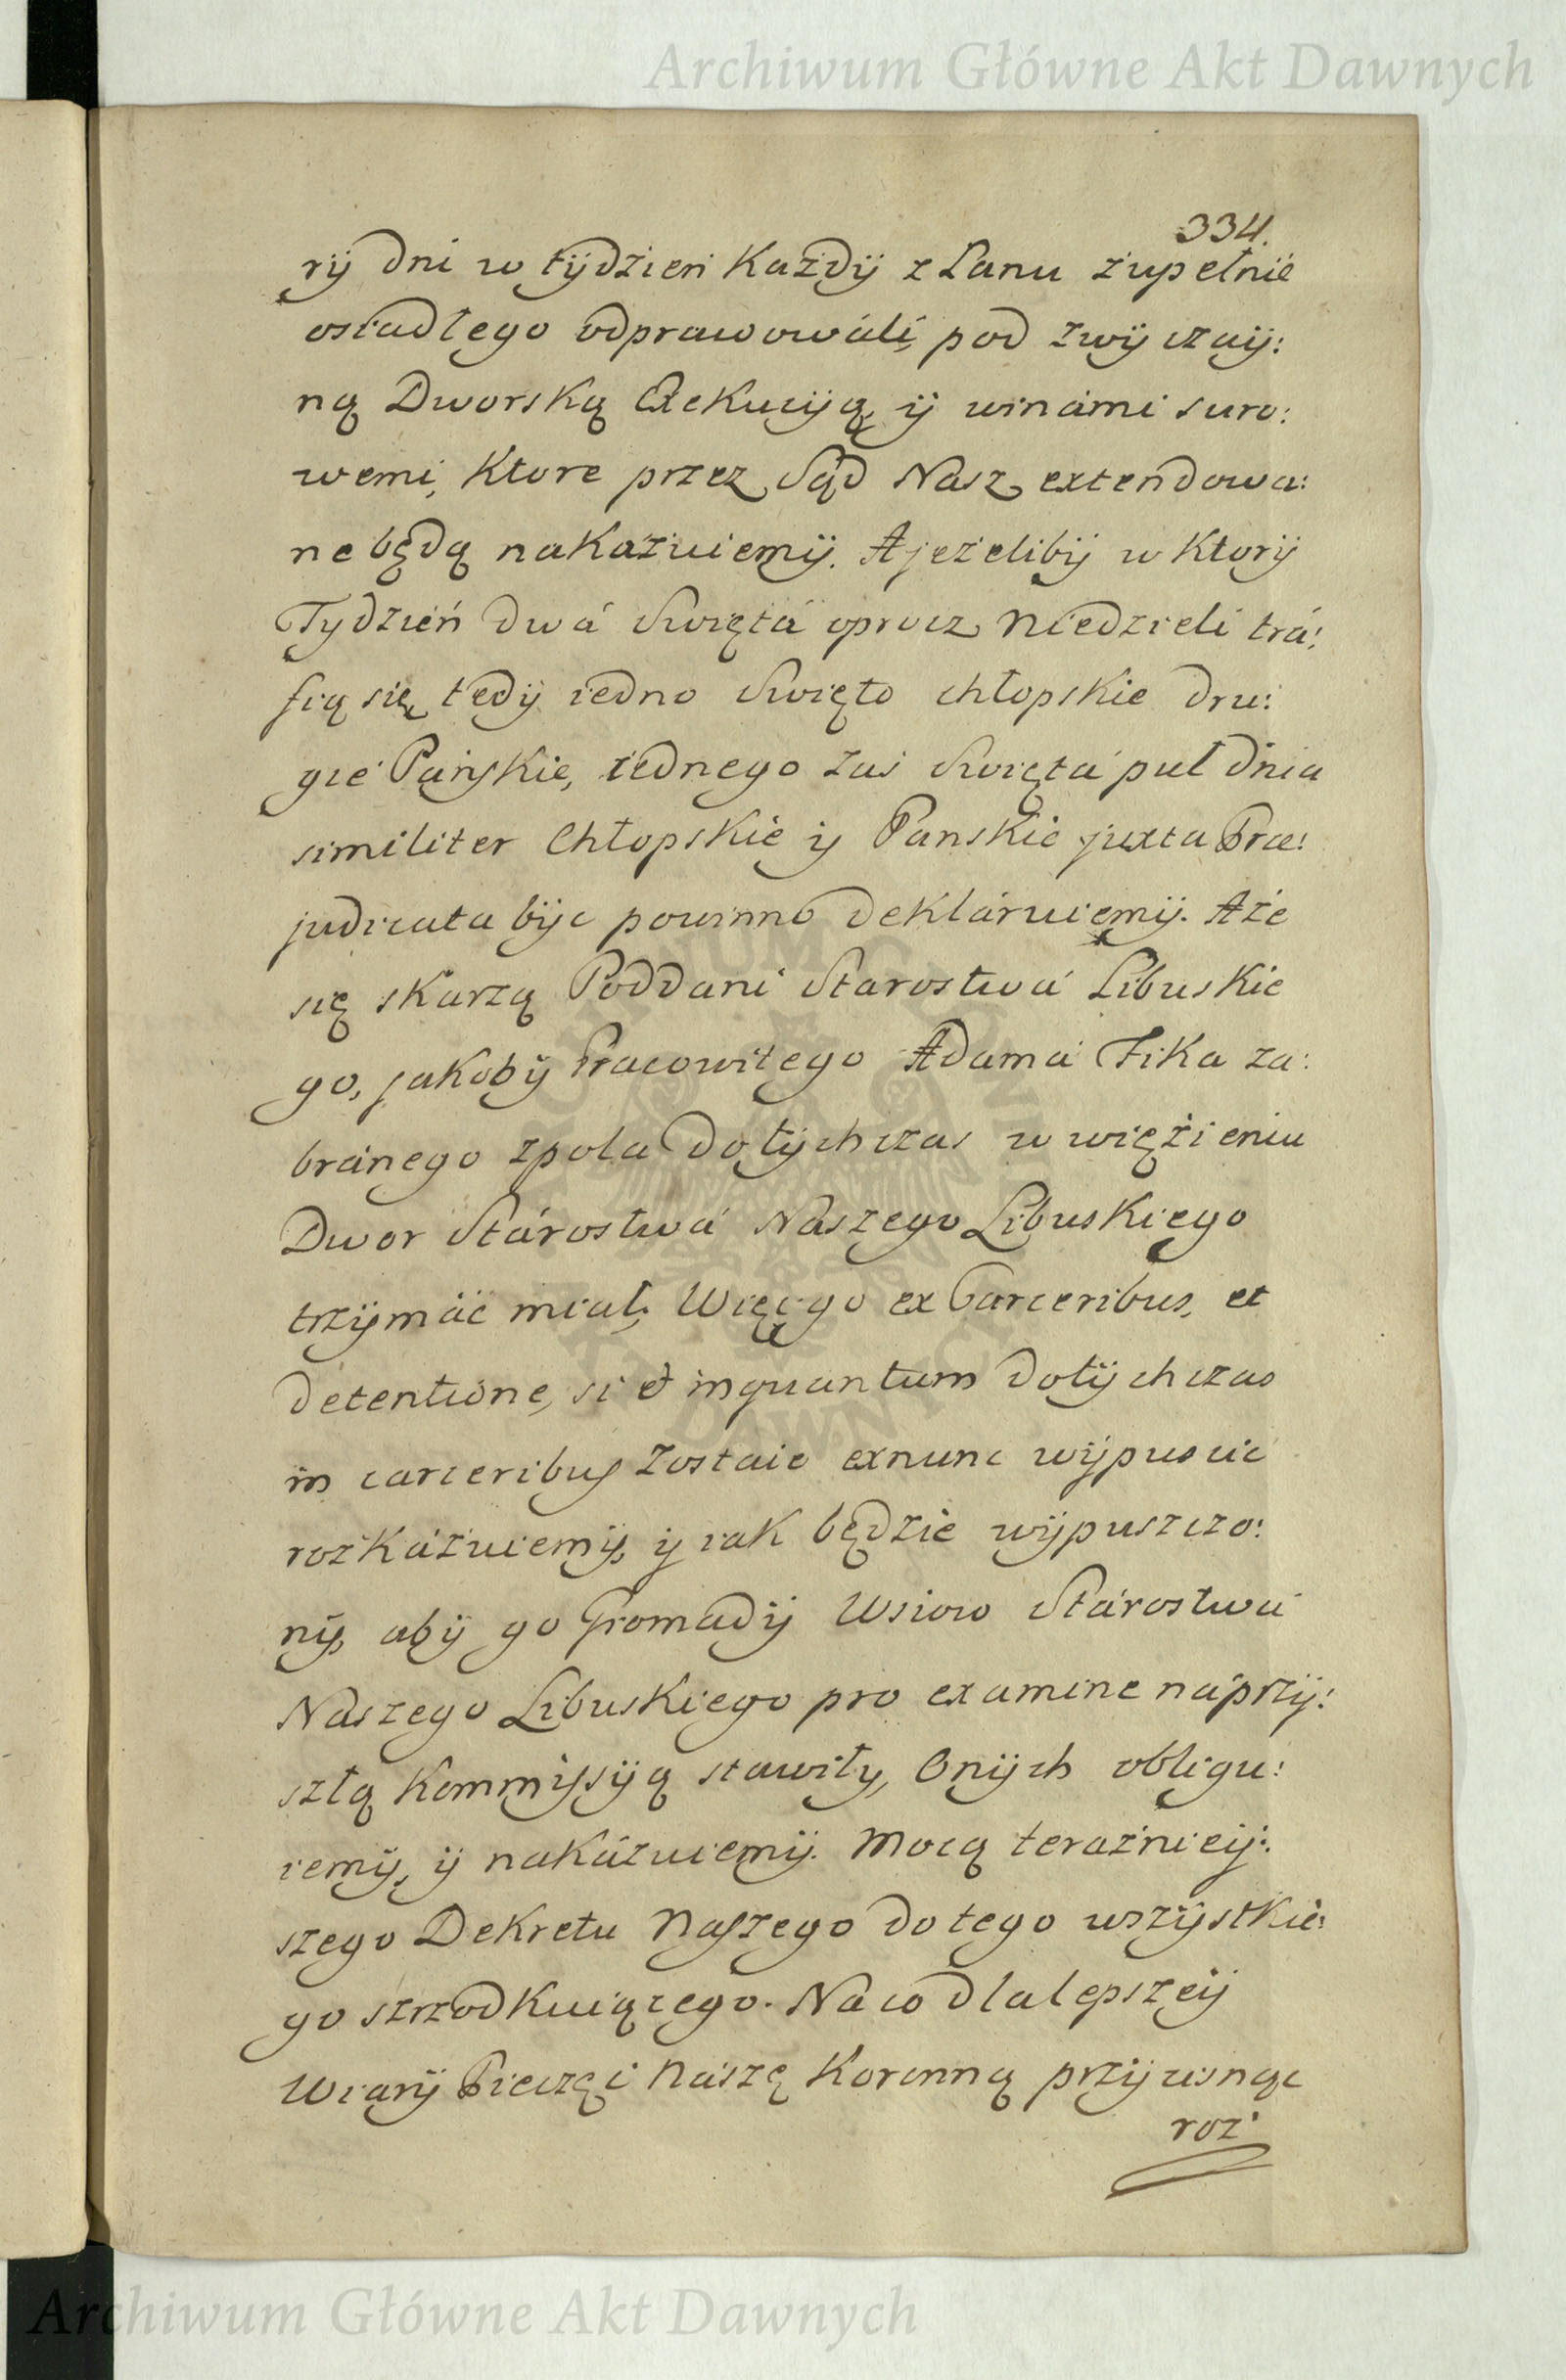 Archiwum Główne Akt Dawnych
334.
rÿ dni w tÿdzień Kazdÿ z Łanu zupełnie
osiadłego odprawowáli, pod zwÿczaÿ:
ną Dworską Exekucÿą, ÿ winámi suro:
wemi, Ktore przez Sąd Nasz extendowa:
ne będą nakazuiemÿ. A jezelibÿ w Ktorÿ
Tydzień dwá Swiętá oprocz Niedzieli trá:
fią się, tedÿ iedno Swięto chłopskie dru:
gie Pańskie, iednego zaś Swiętá puł dnia
similiter Chłopskie ÿ Panskie juxta Præ:
judicata bÿc powinno deklaruiemÿ. Aże
się skarzą Poddani Starostwá Libuskie
go, jakobÿ Pracowitego Adama Fika za:
bránego zpola dotÿchczas w więzieniu
Dwor Stárostwá Naszego Libuskiego
trzÿmáć miał, Więc go ex Carceribus, et
detentione, si et inquantum dotÿchczas
in carceribus zostaie exnunc wÿpuscic
rozkázuiemÿ, ÿ iak będzie wÿpuszczo:
nÿ, abÿ go Gromadÿ Wsiow Stárostwá
Naszego Libuskiego pro examine náprzÿ:
szłą Kommissÿą stawiły, Onÿch obligu:
iemÿ, ÿ nakázuiemÿ. Mocą teraznieÿ:
szego Dekretu Naszego do tego wszÿstkie:
go szrzodkuiącego. Na co dla lepszeÿ
Wiarÿ Pieczęć Nászę Koronną przÿcisnąc
roz
ARCHIWUM GŁÓWNE AKT DAWNYCH
Archiwum Główne Akt Dawnych